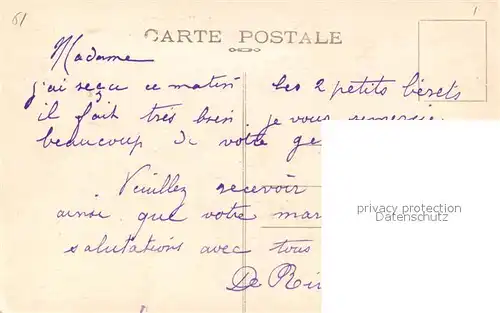 61
1
CARTE POSTALE
Madame
j'ai reçu ce matin les 2 petits bérets
il fait très bien je vous remercie
beaucoup de votre
Veuillez recevoir
ainsi que votre mar
salutations avec tous
De
privacy protection
Datenschutz